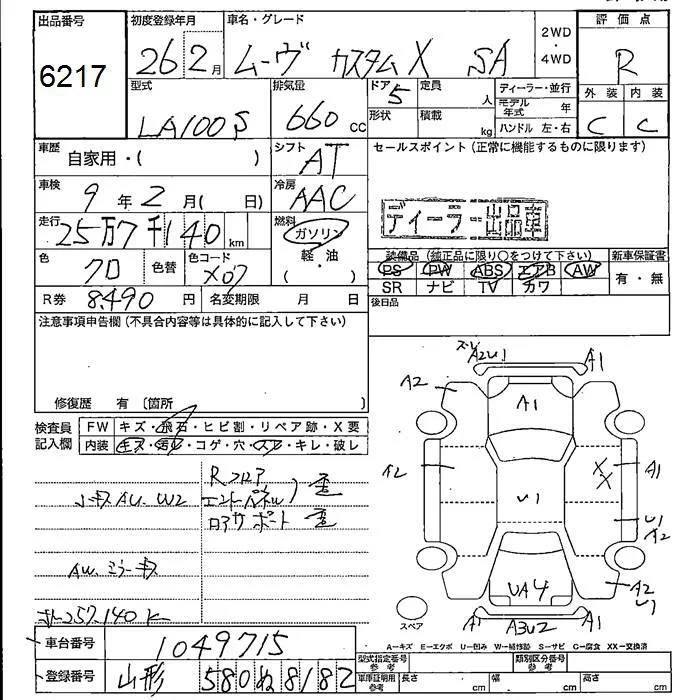 出品番号 初度登録年月 車名・グレード 2WD 評価点
6217 26 2月 ムーヴ カスタムX SA ・ R
4WD
型式 排気量 ドア 5 定員 人 ディーラー・並行 外装 内装
LA100S 660 cc 形状 積載 kg モデル年式 年 C C
ハンドル 左・右
車歴 自家用・( ) シフト AT セールスポイント (正常に機能するものに限ります)
車検 9年2月( 日) 冷房 AAC
走行 25万7千140km 燃料 ガソリン 軽・油 ディーラー出品車
色 クロ 色替 色コード X07 装備品 (純正品に限り○をつけて下さい) 新車保証書
PS PW ABS エアB AW 有・無
SR ナビ TV カワ
R券 8,490円 名変期限 月 日 後日品
注意事項申告欄 (不具合内容等は具体的に記入して下さい)
修復歴 有 〔箇所 〕
検査員記入欄 FW キズ・飛石・ヒビ割・リペア跡・X要
内装 キズ・汚レ・コゲ・穴・スレ・キレ・破レ
Rフロア
小キズ AU W2 エンドパネル
ロアサポート 歪
AW、ミラーキズ
257,140K
A2U1 A1
A2 A1
A2 U1 XX A1
U1 A2
UA4 A2 U1
スペア A1 A3U2 A1
A-キズ E-エクボ U-凹み W-補修跡 S-サビ C-腐食 XX-交換済
車台番号 1049715
型式指定番号 参考 類別区分番号 参考
登録番号 山形 580 ぬ 8182
車庫証明用 参考 長さ cm 幅 cm 高さ cm